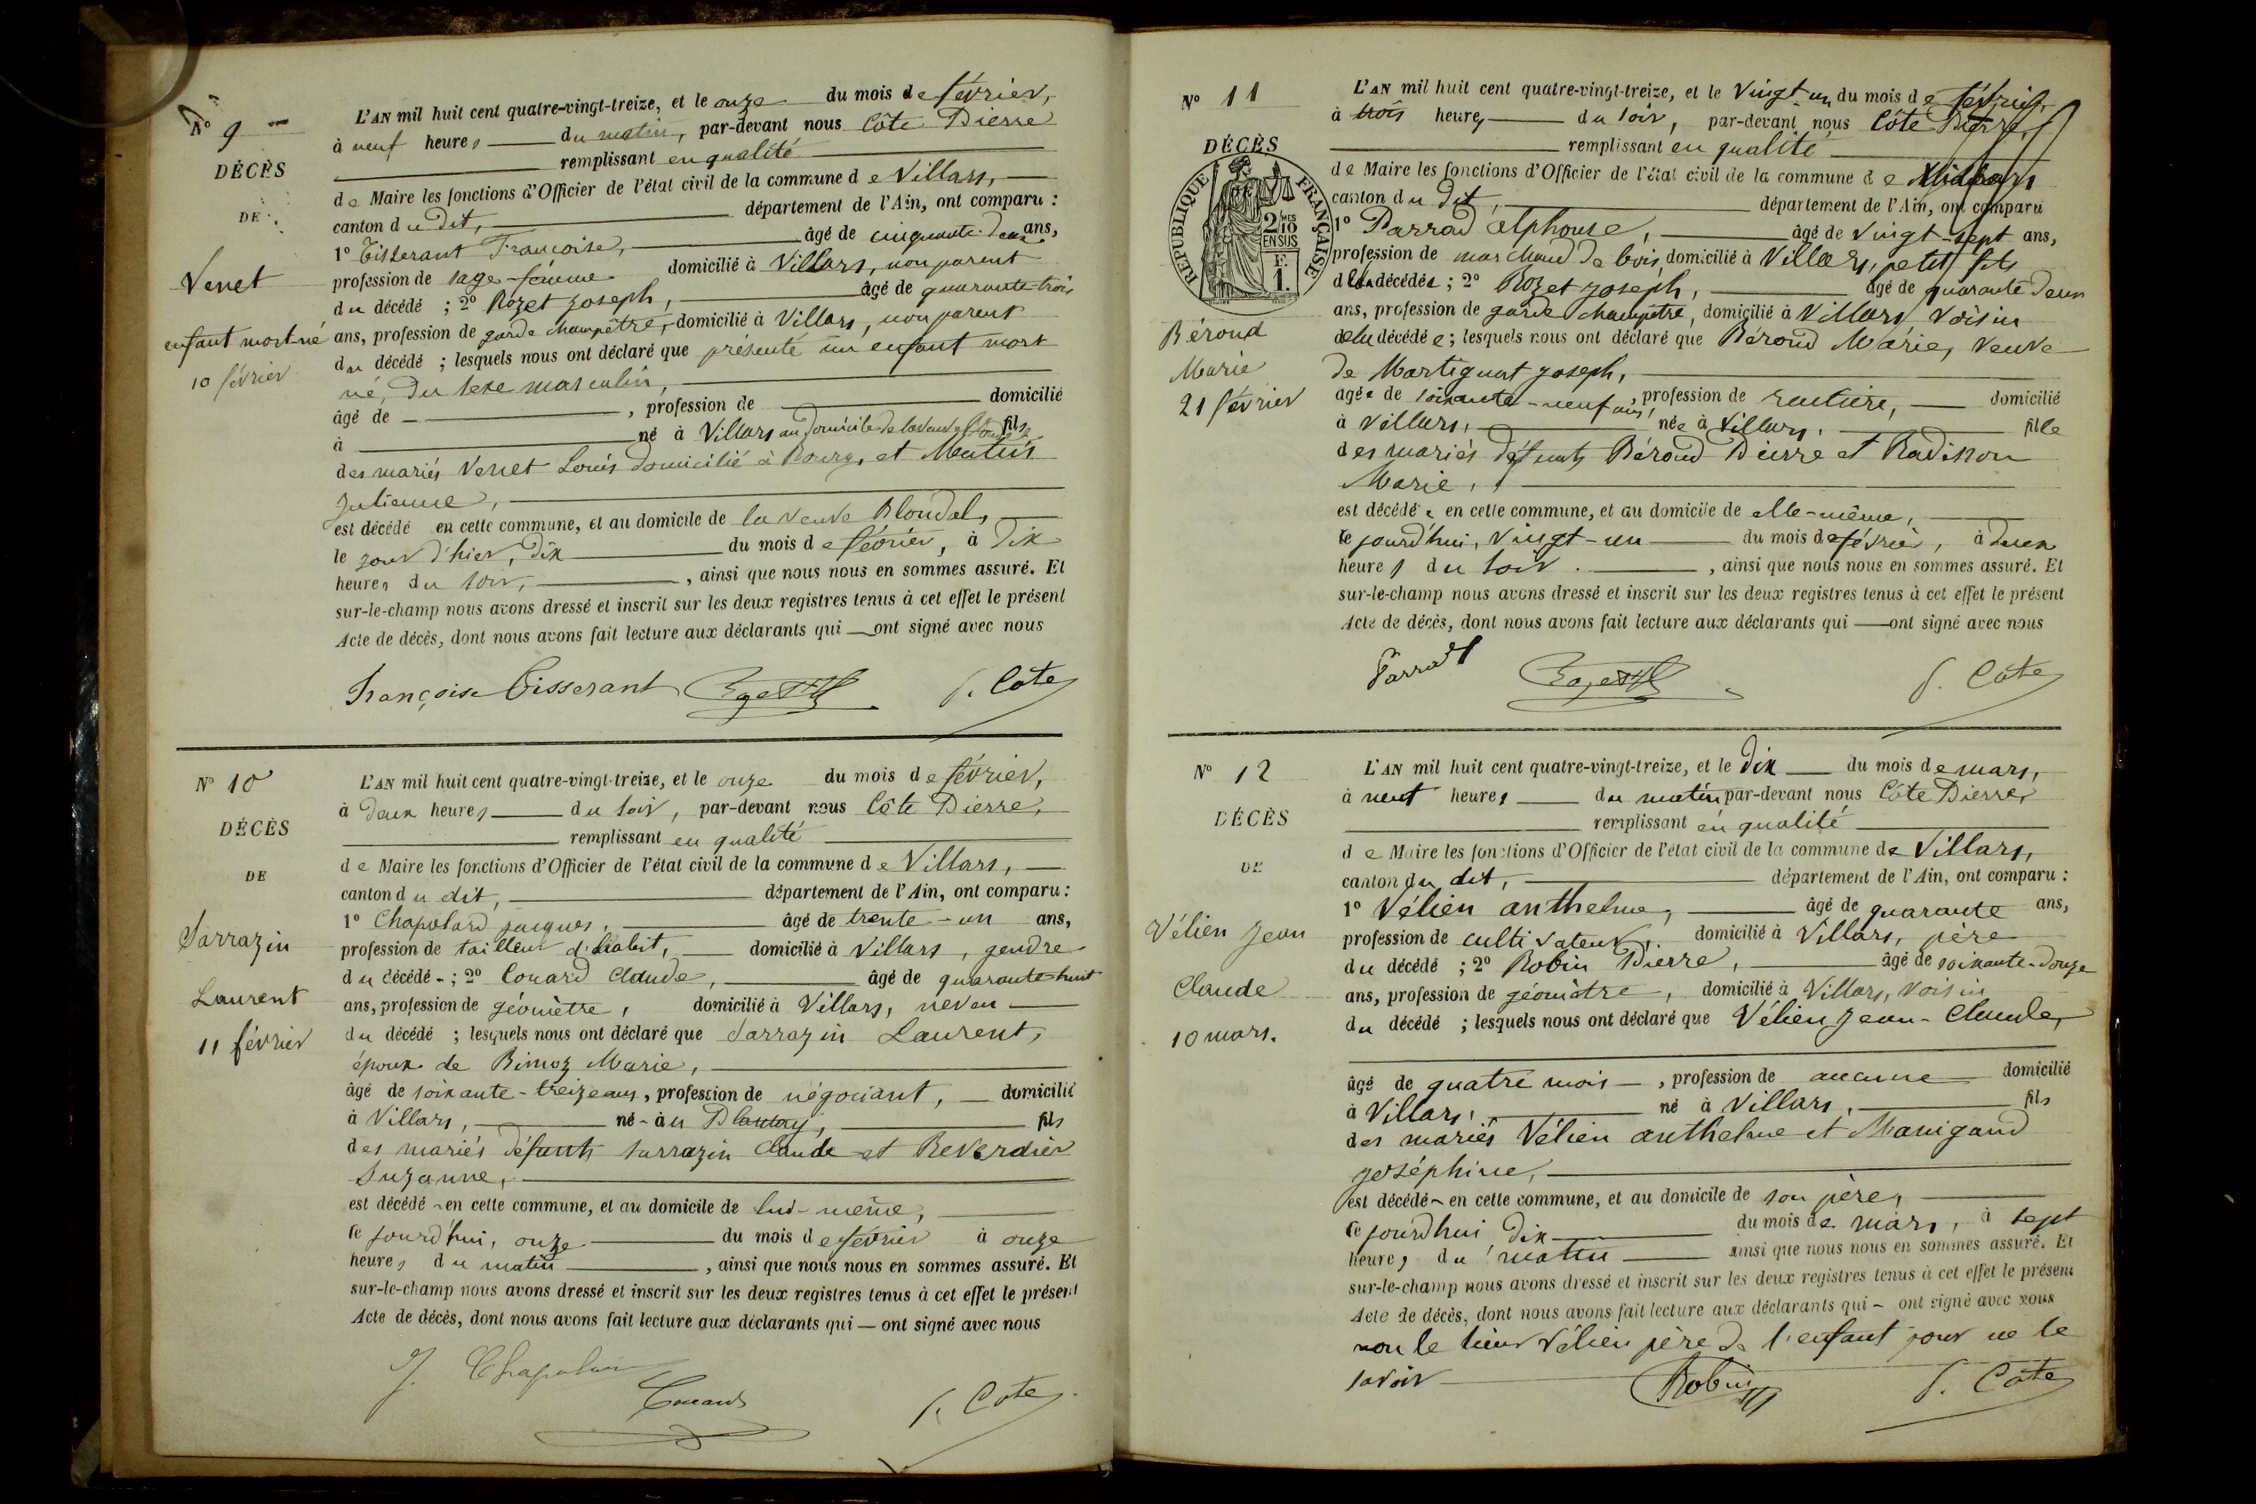 N° 9
DÉCÈS
DE
Venet
enfant mort-né
10 février
L'AN mil huit cent quatre-vingt-treize, et le onze du mois de février,
à neuf heures du matin, par-devant nous Côte Pierre
remplissant en qualité
de Maire les fonctions d'Officier de l'état civil de la commune de Villars,
canton du dit, département de l'Ain, ont comparu :
1° Tisserant Françoise, âgé de cinquante-deux ans,
profession de sage-femme domicilié à Villars, non parent
du décédé ; 2° Rozet Joseph, âgé de quarante-trois
ans, profession de garde champêtre, domicilié à Villars, non parent
du décédé ; lesquels nous ont déclaré que présenté un enfant mort
né, du sexe masculin,
âgé de , profession de domicilié
à né à Villars au domicile de la veuve Blondel fils
des mariés Venet Louis domicilié à Bourg, et Mathis
Julienne,
est décédé en cette commune, et au domicile de la veuve Blondel,
le jour d'hier, dix du mois de février, à dix
heures du soir, , ainsi que nous nous en sommes assuré. Et
sur-le-champ nous avons dressé et inscrit sur les deux registres tenus à cet effet le présent
Acte de décès, dont nous avons fait lecture aux déclarants qui ont signé avec nous
Françoise Tisserant Rozet P. Côte
N° 10
DÉCÈS
DE
Sarrazin
Laurent
11 février
L'AN mil huit cent quatre-vingt-treize, et le onze du mois de février,
à deux heures du soir, par-devant nous Côte Pierre,
remplissant en qualité
de Maire les fonctions d'Officier de l'état civil de la commune de Villars,
canton du dit, département de l'Ain, ont comparu :
1° Chapolard Jacques, âgé de trente-un ans,
profession de tailleur d'habit, domicilié à Villars, gendre
du décédé ; 2° Couard Claude, âgé de quarante-huit
ans, profession de géomètre, domicilié à Villars, neveu
du décédé ; lesquels nous ont déclaré que Sarrazin Laurent,
époux de Bimoz Marie,
âgé de soixante-treize ans, profession de négociant, domicilié
à Villars, né au Plantay, fils
des mariés défunts Sarrazin Claude et Reverdier
Suzanne,
est décédé en cette commune, et au domicile de lui-même,
le jourd'hui, onze du mois de février à onze
heures du matin , ainsi que nous nous en sommes assuré. Et
sur-le-champ nous avons dressé et inscrit sur les deux registres tenus à cet effet le présent
Acte de décès, dont nous avons fait lecture aux déclarants qui ont signé avec nous
J. Chapolard
Couard P. Côte
N° 11
DÉCÈS
RÉPUBLIQUE FRANÇAISE
2 MES 10 EN SUS
F. 1.
Béroud
Marie
21 février
L'AN mil huit cent quatre-vingt-treize, et le vingt-un du mois de février,
à trois heures du soir, par-devant nous Côte Pierre,
remplissant en qualité
de Maire les fonctions d'Officier de l'état civil de la commune de Villars
canton du dit, département de l'Ain, ont comparu
1° Parrad Alphonse, âgé de vingt-sept ans,
profession de marchand de bois, domicilié à Villars, petit fils
de la décédée ; 2° Rozet Joseph, âgé de quarante deux
ans, profession de garde champêtre, domicilié à Villars voisin
de la décédée ; lesquels nous ont déclaré que Béroud Marie, veuve
de Martignat Joseph,
agée de soixante-neuf ans, profession de rentière, domicilié
à Villars, née à Villars, fille
des mariés défunts Béroud Pierre et Radisson
Marie,
est décédée en cette commune, et au domicile de elle-même,
le jourd'hui, vingt-un du mois de février, à deux
heures du soir. , ainsi que nous nous en sommes assuré. Et
sur-le-champ nous avons dressé et inscrit sur les deux registres tenus à cet effet le présent
Acte de décès, dont nous avons fait lecture aux déclarants qui ont signé avec nous
Parrad Rozet P. Côte
N° 12
DÉCÈS
DE
Vélien Jean
Claude
10 mars.
L'AN mil huit cent quatre-vingt-treize, et le dix du mois de mars,
à neuf heures du matin par-devant nous Côte Pierre,
remplissant en qualité
de Maire les fonctions d'Officier de l'état civil de la commune de Villars,
canton du dit, département de l'Ain, ont comparu :
1° Vélien Anthelme, âgé de quarante ans,
profession de cultivateur, domicilié à Villars, père
du décédé ; 2° Robin Pierre, âgé de soixante-douze
ans, profession de géomètre, domicilié à Villars, voisin
du décédé ; lesquels nous ont déclaré que Vélien Jean-Claude,
âgé de quatre mois , profession de aucune domicilié
à Villars, né à Villars, fils
des mariés Vélien Anthelme et Manigand
Joséphine,
est décédé en cette commune, et au domicile de son père,
le jourd'hui dix du mois de mars, à sept
heures du matin ainsi que nous nous en sommes assuré. Et
sur-le-champ nous avons dressé et inscrit sur les deux registres tenus à cet effet le présent
Acte de décès, dont nous avons fait lecture aux déclarants qui ont signé avec nous
non le sieur Vélien père de l'enfant pour ne le
savoir Robin P. Côte